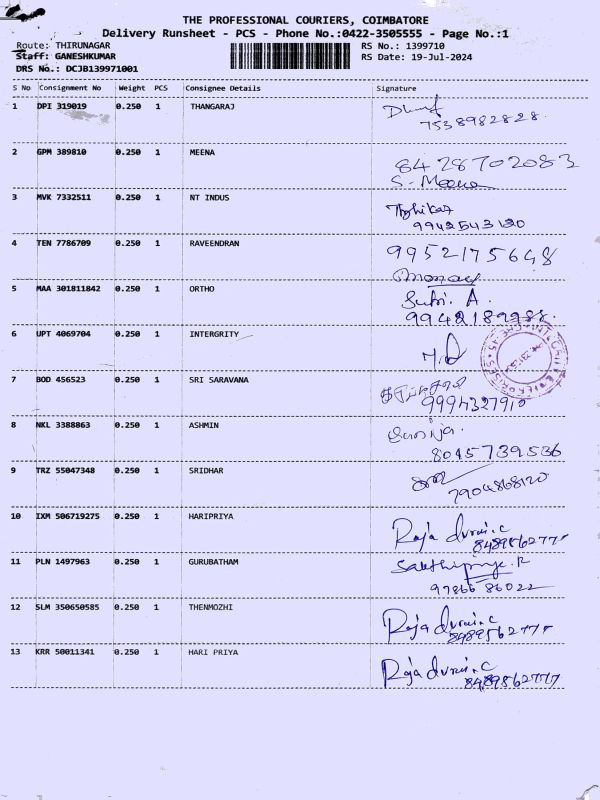 THE PROFESSIONAL COURIERS, COIMBATORE
Delivery Runsheet - PCS - Phone No.:0422-3505555 - Page No.:1
Route: THIRUNAGAR RS No.: 1399710
Staff: GANESHKUMAR RS Date: 19-Jul-2024
DRS No.: DCJB139971001
S No Consignment No Weight PCS Consignee Details Signature
1 DPI 319019 0.250 1 THANGARAJ
7538982828
2 GPM 389810 0.250 1 MEENA
8428702083
S. Meena
3 MVK 7332511 0.250 1 NT INDUS
9942543120
4 TEN 7786709 0.250 1 RAVEENDRAN
9952175648
5 MAA 301811842 0.250 1 ORTHO
A.
6 UPT 4069704 0.250 1 INTERGRITY
7 BOD 456523 0.250 1 SRI SARAVANA
9994327910
8 NKL 3388863 0.250 1 ASHMIN
8045739536
9 TRZ 55047348 0.250 1 SRIDHAR
7904868120
10 IXM 506719275 0.250 1 HARIPRIYA
Raja durai.c
11 PLN 1497963 0.250 1 GURUBATHAM
12 SLM 350650585 0.250 1 THENMOZHI
Raja durai.c
13 KRR 50011341 0.250 1 HARI PRIYA
Raja durai.c
8489562777